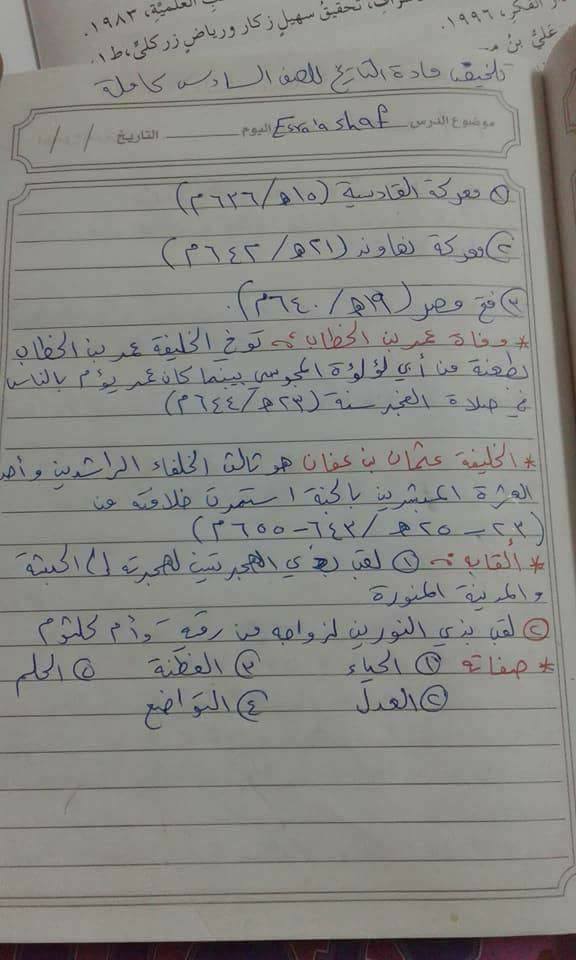 العلميَّة، ١٩٨٣.
تحقيق سهيل زكار ورياض زركلي، ط١.
الفكر، ١٩٩٦.
عليّ بن
تلخيص مادة التاريخ للصف السادس كاملة
موضوع الدرس Esra'a shaf اليوم التاريخ / /
① معركة القادسية (١٥هـ/٦٣٦م)
② معركة نهاوند (٢١هـ/٦٤٢م)
③ فتح مصر (١٩هـ/٦٤٠م).
* وفاة عمر بن الخطاب :- توفي الخليفة عمر بن الخطاب
بطعنة من أبي لؤلؤة المجوسي بينما كان عمر يؤم بالناس
في صلاة الفجر سنة (٢٣هـ/٦٤٤م)
* الخليفة عثمان بن عفان هو ثالث الخلفاء الراشدين وأحد
العشرة المبشرين بالجنة استمرت خلافته من
(٢٣-٢٥هـ/٦٤٣-٦٥٥م)
* ألقابه :- ① لقب بذي الهجرتين لهجرته إلى الحبشة
والمدينة المنورة
② لقب بذي النورين لزواجه من رقية وأم كلثوم
* صفاته ① الحياء ③ الفطنة ⑤ الحلم
② العدل ④ التواضع